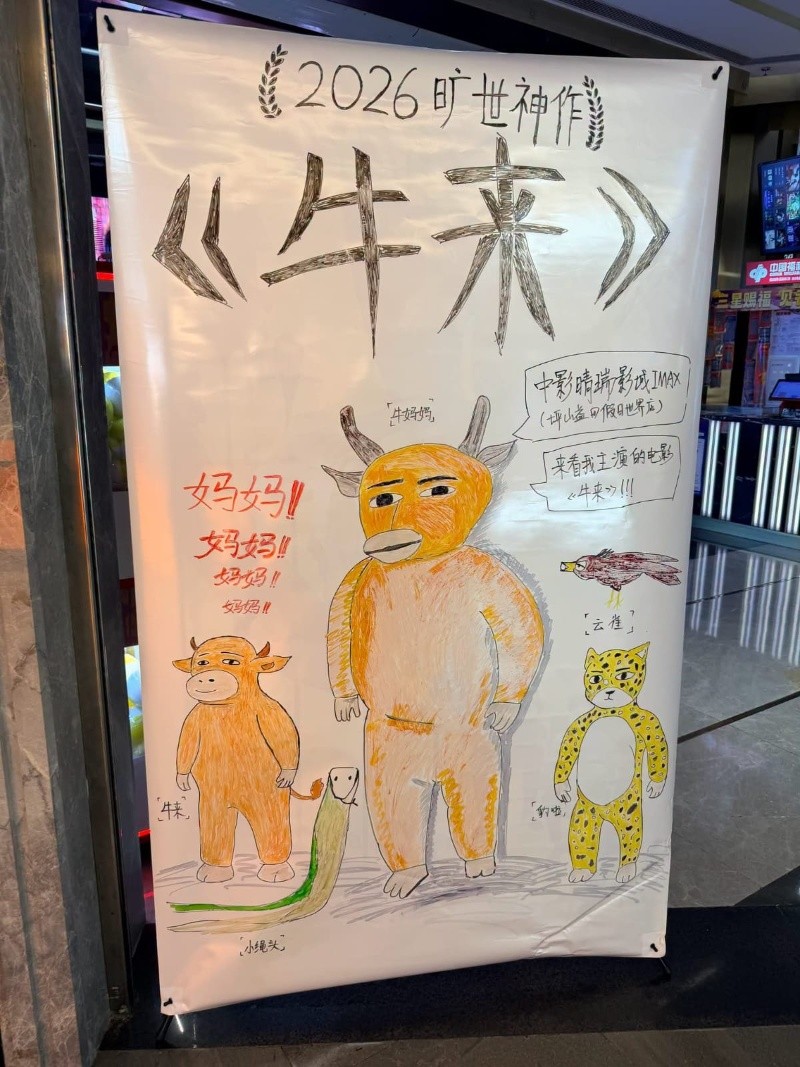 2026旷世神作
《牛来》
中影晴瑞影城IMAX
(坪山益田假日世界店)
「牛妈妈」
来看我主演的电影
《牛来》!!!
妈妈!!
妈妈!!
妈妈!!
妈妈!!
「云雀」
「牛来」
「豹啦」
「小绳头」
中国福利
三星赐福